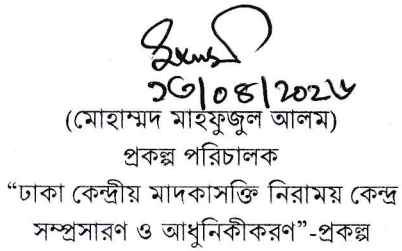 ১৩/০৪/২০২৬
(মোহাম্মদ মাহফুজুল আলম)
প্রকল্প পরিচালক
“ঢাকা কেন্দ্রীয় মাদকাসক্তি নিরাময় কেন্দ্র
সম্প্রসারণ ও আধুনিকীকরণ”-প্রকল্প